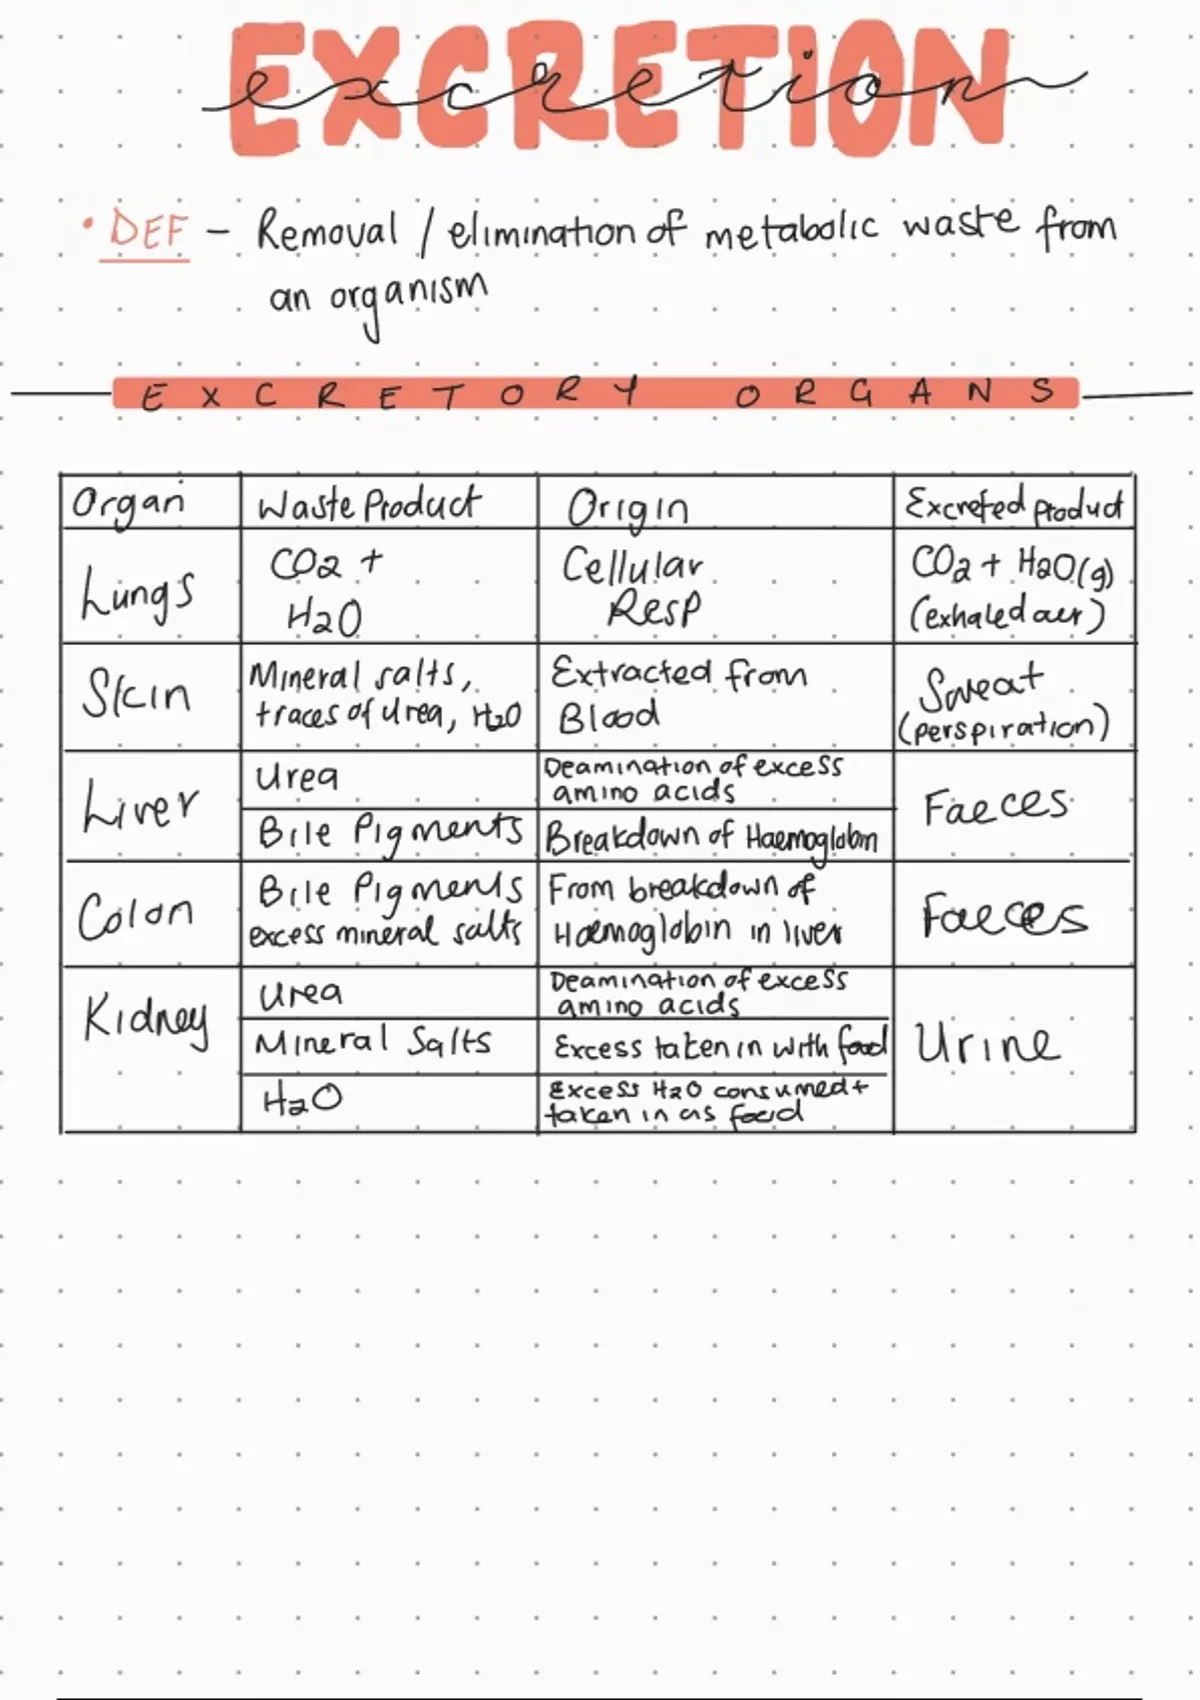 EXCRETION
excretion
• DEF – Removal / elimination of metabolic waste from
an organism
EXCRETORY ORGANS
Organ Waste Product Origin Excreted product
Lungs CO2 + H2O Cellular Resp CO2 + H2O(g) (exhaled air)
Skin Mineral salts, traces of urea, H2O Extracted from Blood Sweat (perspiration)
Liver Urea Deamination of excess amino acids Faeces
Bile Pigments Breakdown of Haemoglobin
Colon Bile Pigments excess mineral salts From breakdown of Haemoglobin in liver Faeces
Kidney Urea Deamination of excess amino acids Urine
Mineral Salts Excess taken in with food
H2O Excess H2O consumed + taken in as food